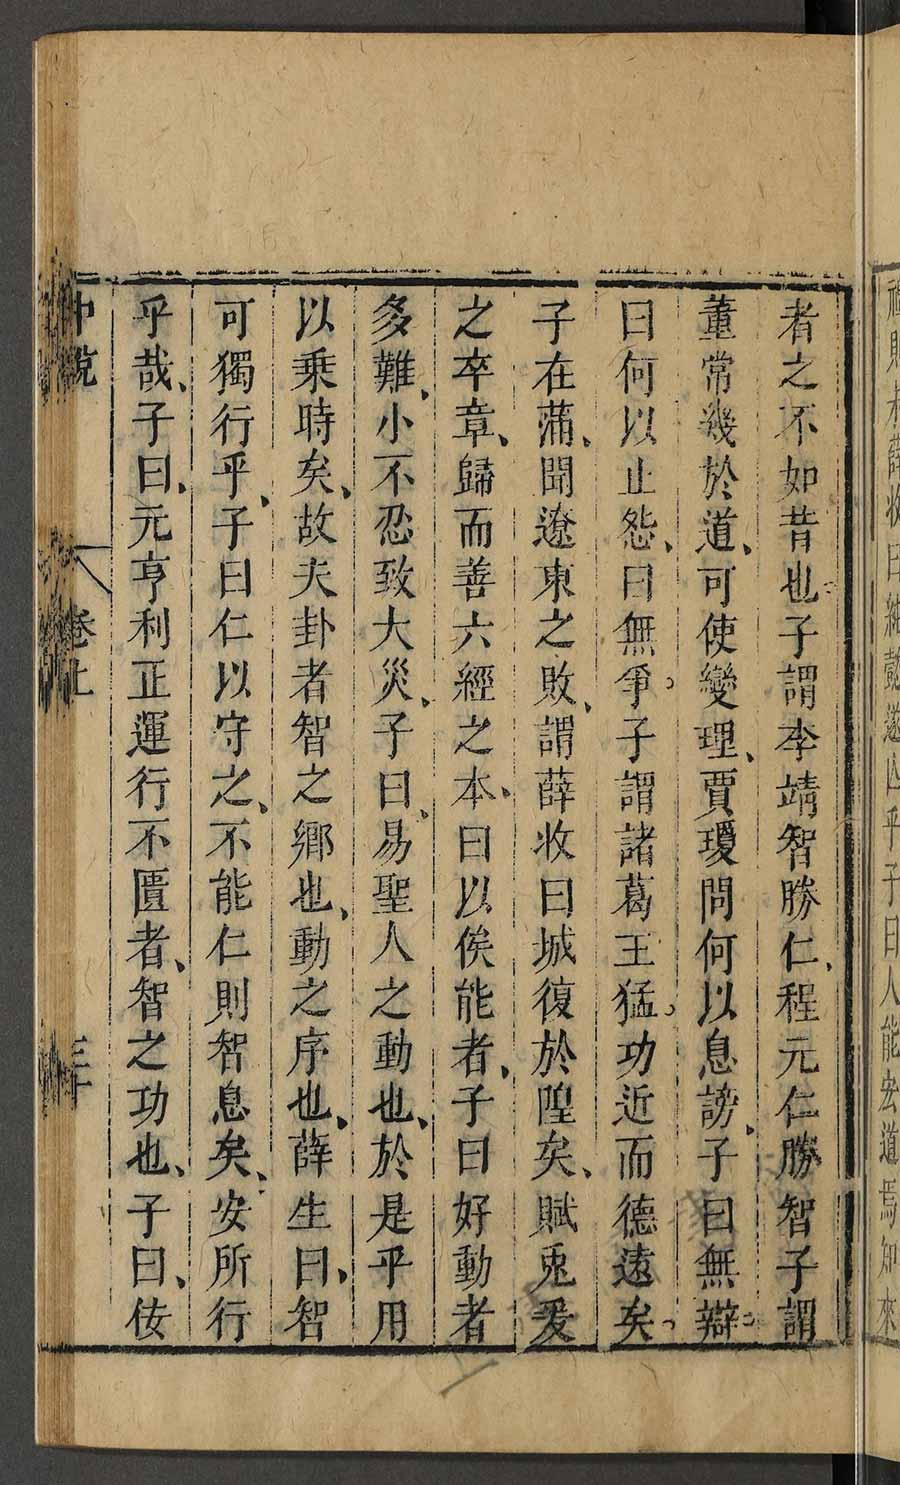 者之不如昔也子謂李靖智勝仁、程元仁勝智子謂
董常幾於道、可使變理、賈瓊問何以息謗、子曰無辯
曰何以止怨、曰無爭子謂諸葛王猛功近而德遠矣
子在蒲、聞遼東之敗、謂薛收曰城復於隍矣、賦兎爰
之卒章、歸而善六經之本、曰以俟能者、子曰好動者
多難、小不忍致大災、子曰、易聖人之動也、於是乎用
以乘時矣、故夫卦者智之鄉也、動之序也、薛生曰、智
可獨行乎、子曰仁以守之、不能仁則智息矣、安所行
乎哉、子曰、元亨利正運行不匱者、智之功也、子曰、佞
中說 卷上